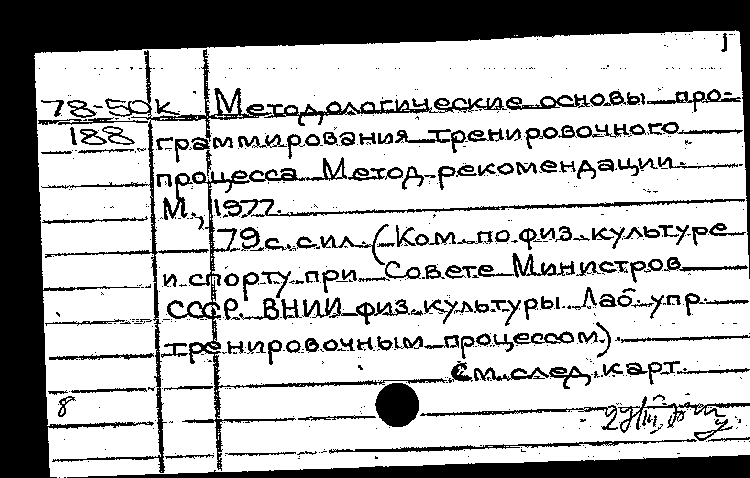 78-50к Методологические основы про-
188 граммирования тренировочного
процесса Метод. рекомендации.
М., 1977.
79 с. с ил. (Ком. по физ. культуре
и спорту при Совете Министров
СССР. ВНИИ физ. культуры Лаб. упр.
тренировочным процессом).
См. след. карт.
8